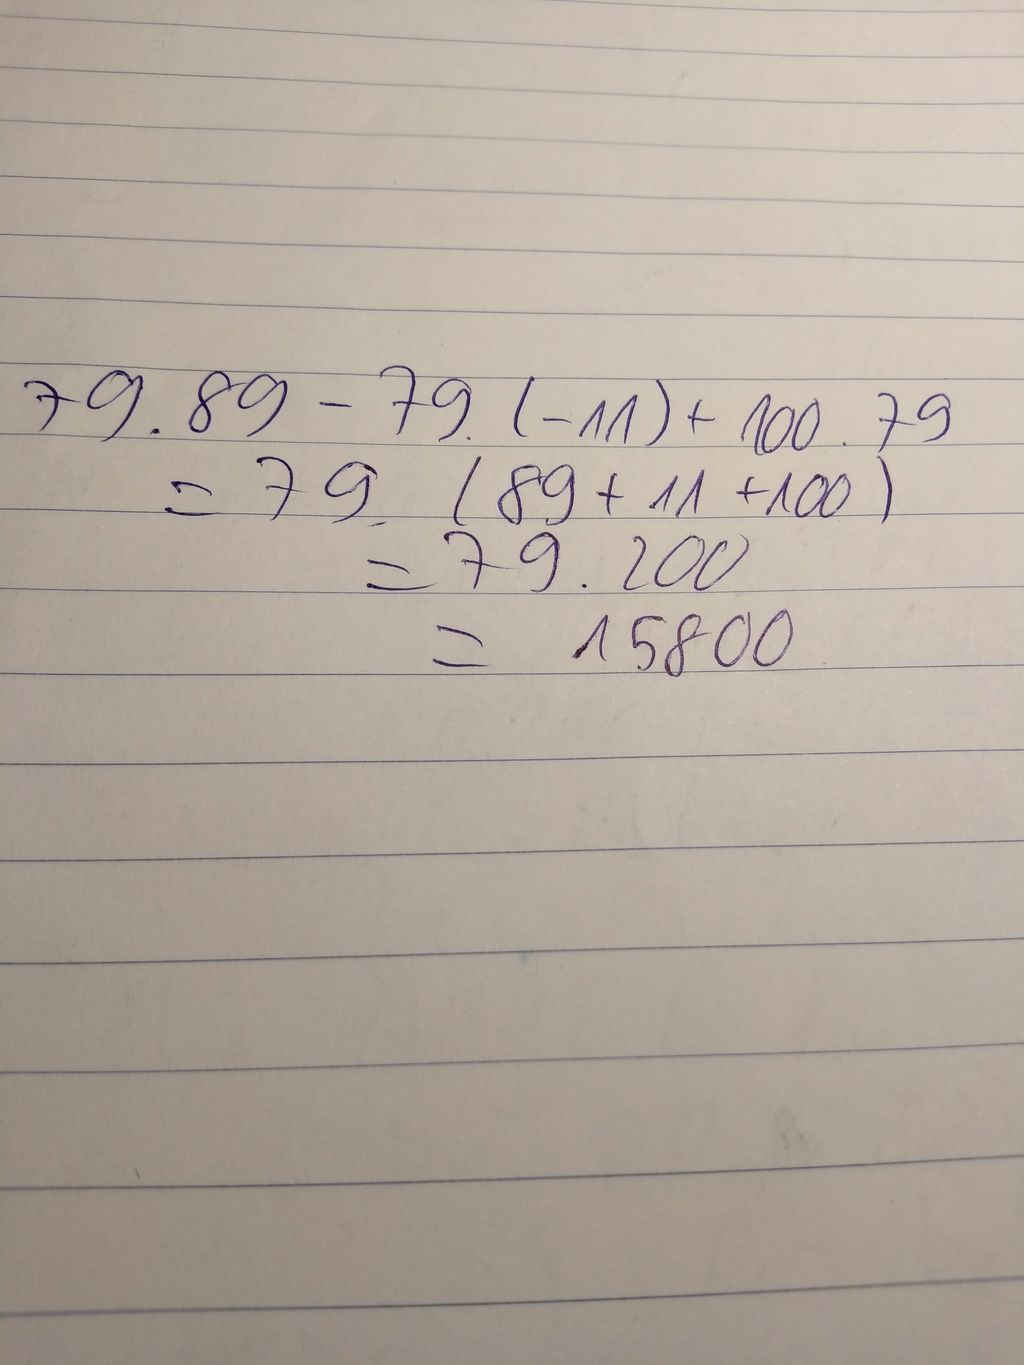 79.89 - 79.(-11)+ 100.79
= 79.(89+11+100)
= 79.200
= 15800